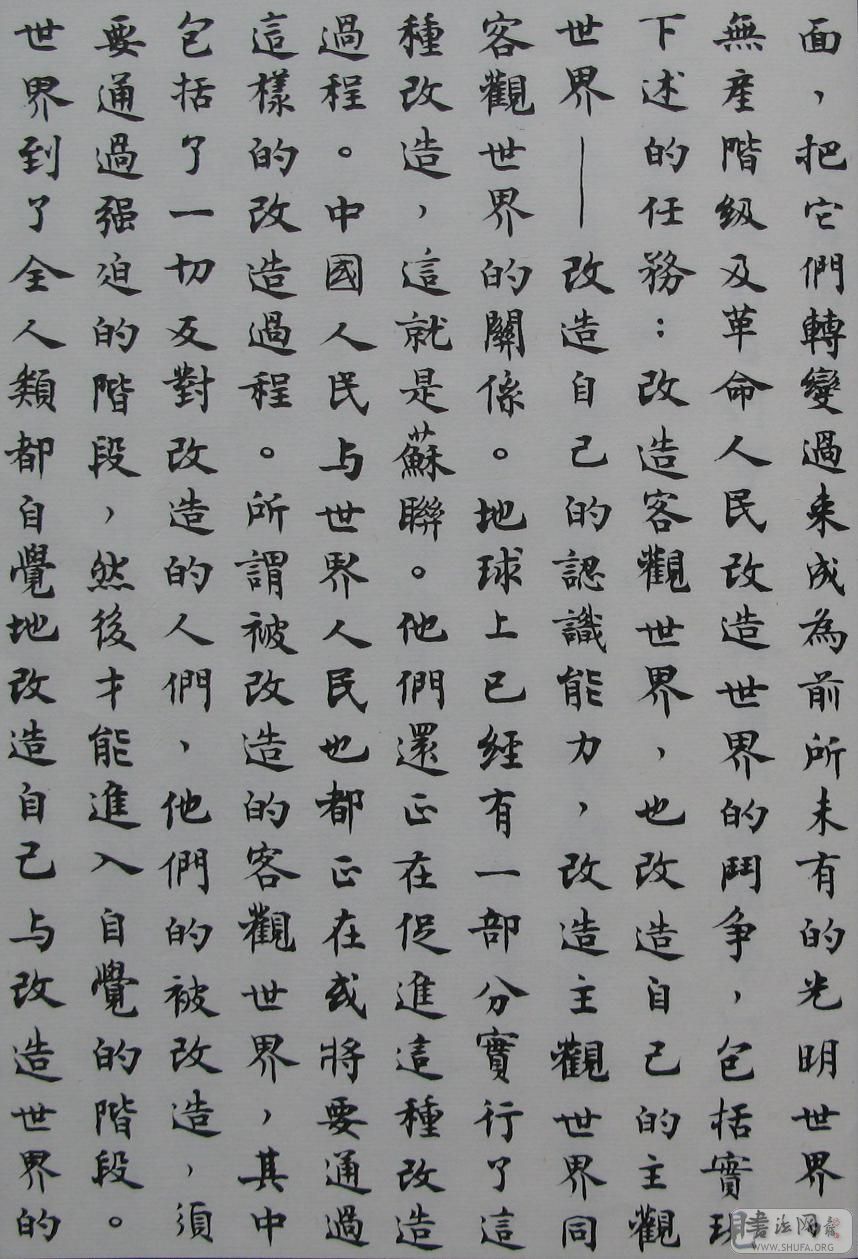 面，把它們轉變過来成為前所未有的光明世界。
無産階級及革命人民改造世界的鬥争，包括實現
下述的任務：改造客觀世界，也改造自己的主觀
世界——改造自己的認識能力，改造主觀世界同
客觀世界的關係。地球上已經有一部分實行了這
種改造，這就是蘇聯。他們還正在促進這種改造
過程。中國人民与世界人民也都正在或將要通過
這樣的改造過程。所謂被改造的客觀世界，其中
包括了一切反對改造的人們，他們的被改造，須
要通過强迫的階段，然後才能進入自覺的階段。
世界到了全人類都自覺地改造自己与改造世界的
書法网
WWW.SHUFA.ORG